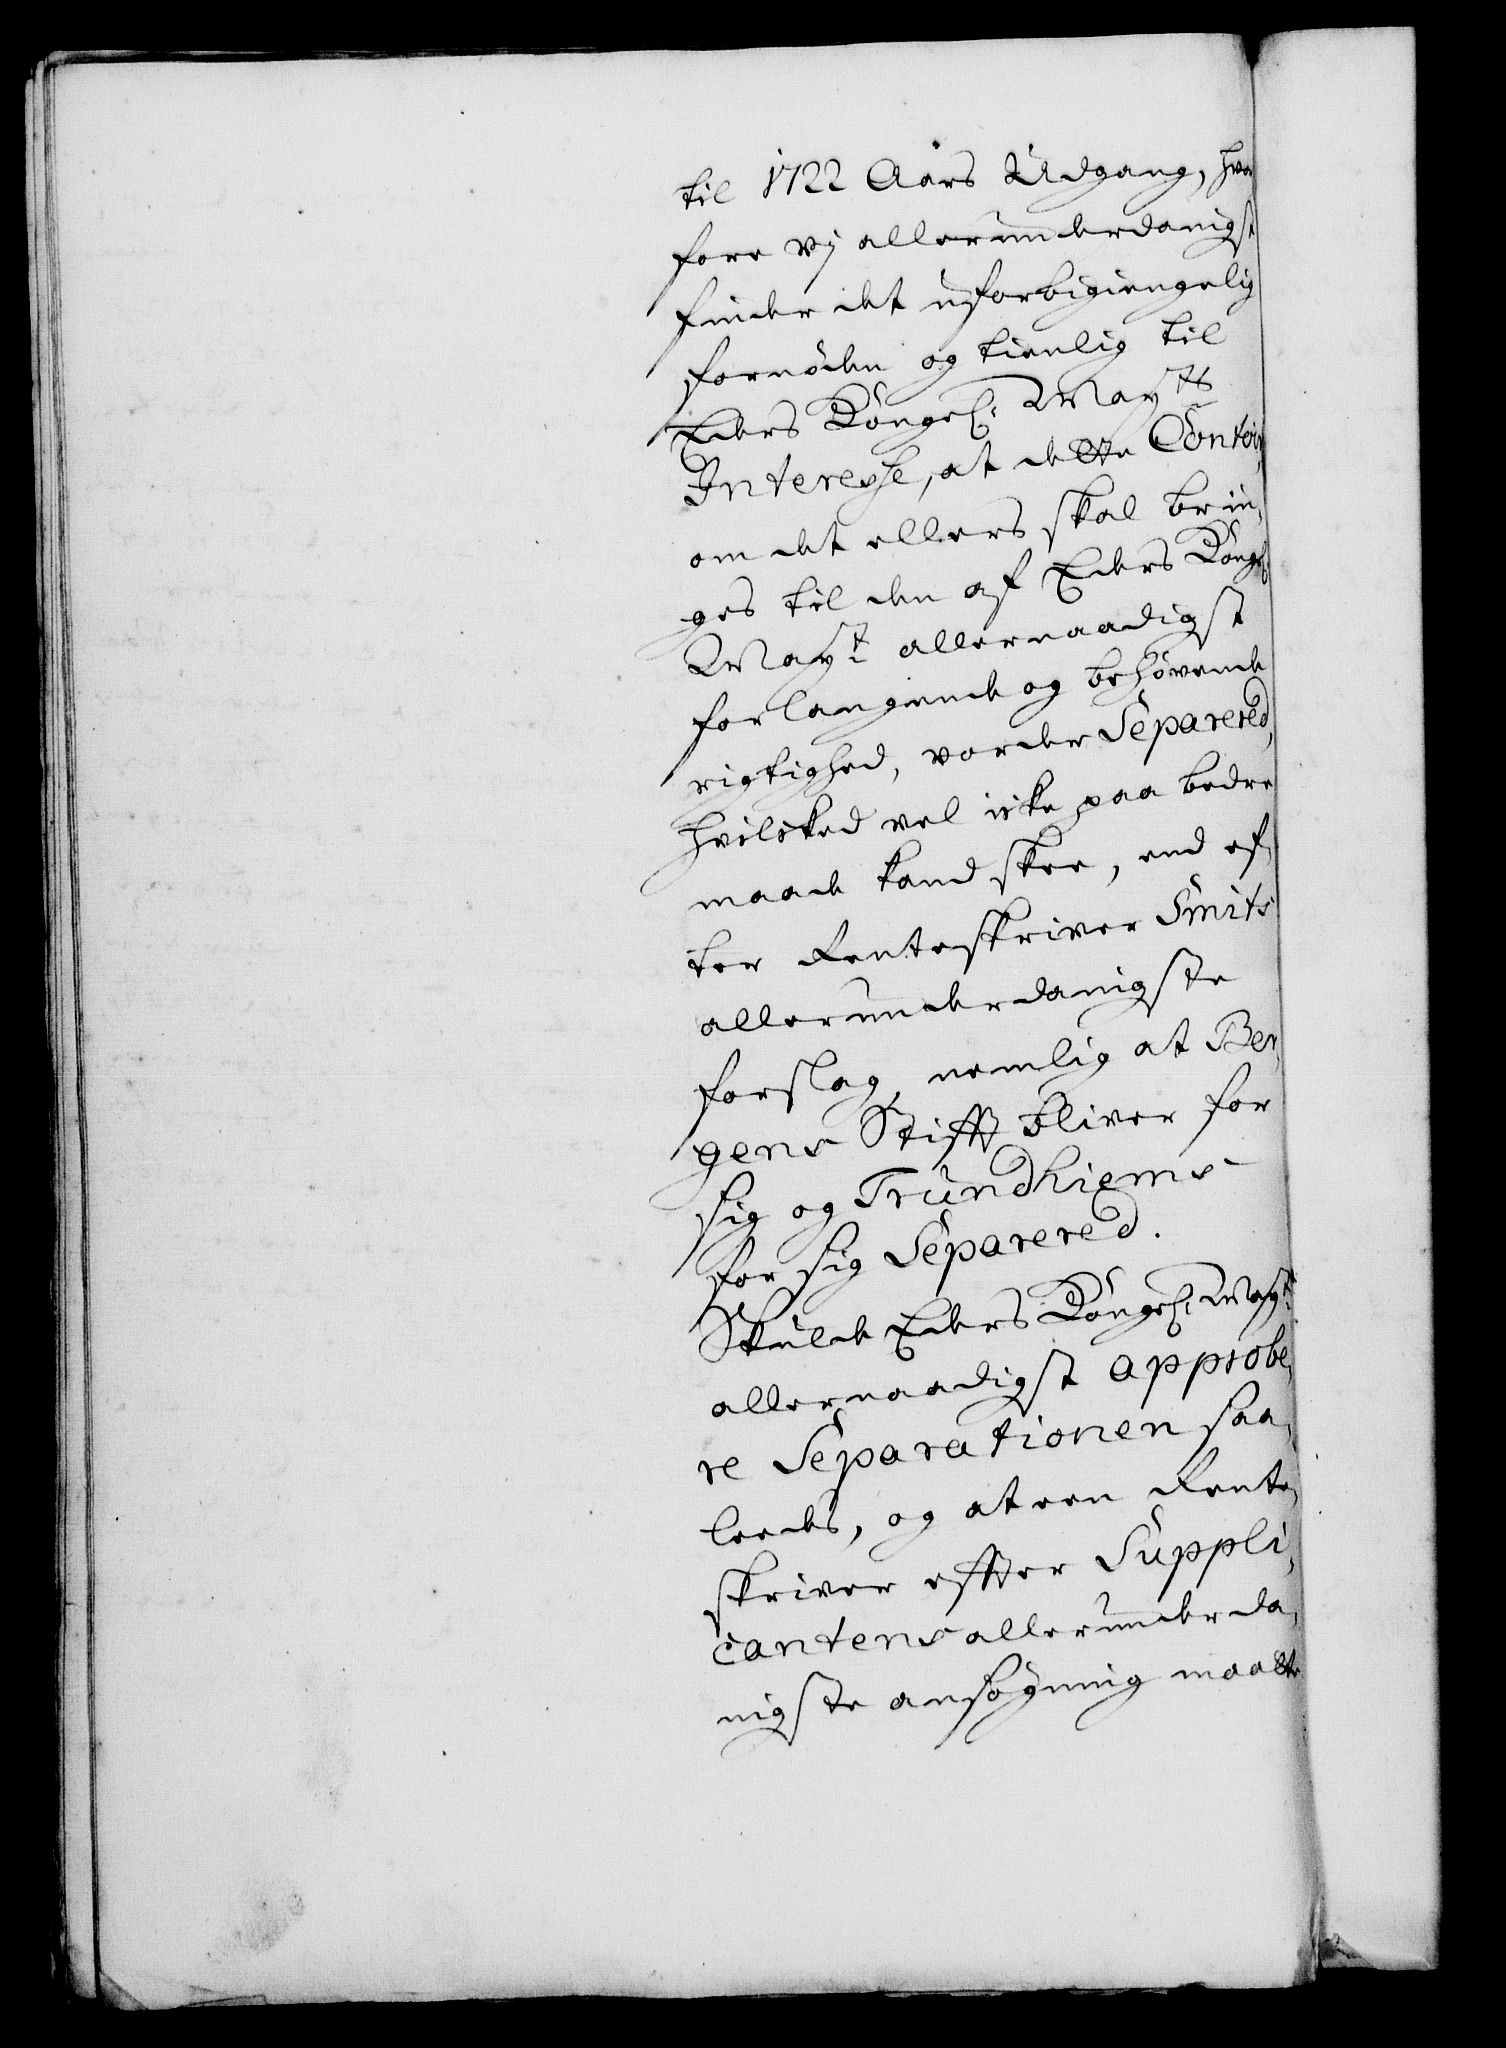 til 1722 Aars Udgang, hvor
fore vj allerunderdanigst
finder det uforbigiengelig
fornøden og tienlig til
Eders Kongel: Mayts
Interesse, at dette Contoir,
om det ellers skal brin,
ges til den af Eders Kongel
Mayt allernaadigst
forlangende og behøvende
rigtighed, vorder Separered,
hvilsked vel icke paa bedre
maade kand skee, end ef,
ter Renteskriver Smits
allerunderdanigste
forslag, nemlig at Ber,
gens Stifft bliver for
sig og Trundhiems
for sig Separered.
Skulde Eders Kongel: Mayt
allernaadigst approbe,
re Separationen saa,
leedes, og at een Rente,
skriver effter Suppli,
cantens allerunderda,
nigste ansøgning maatte